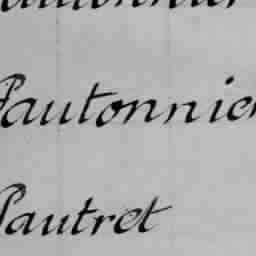 Pautonnier
Pautret